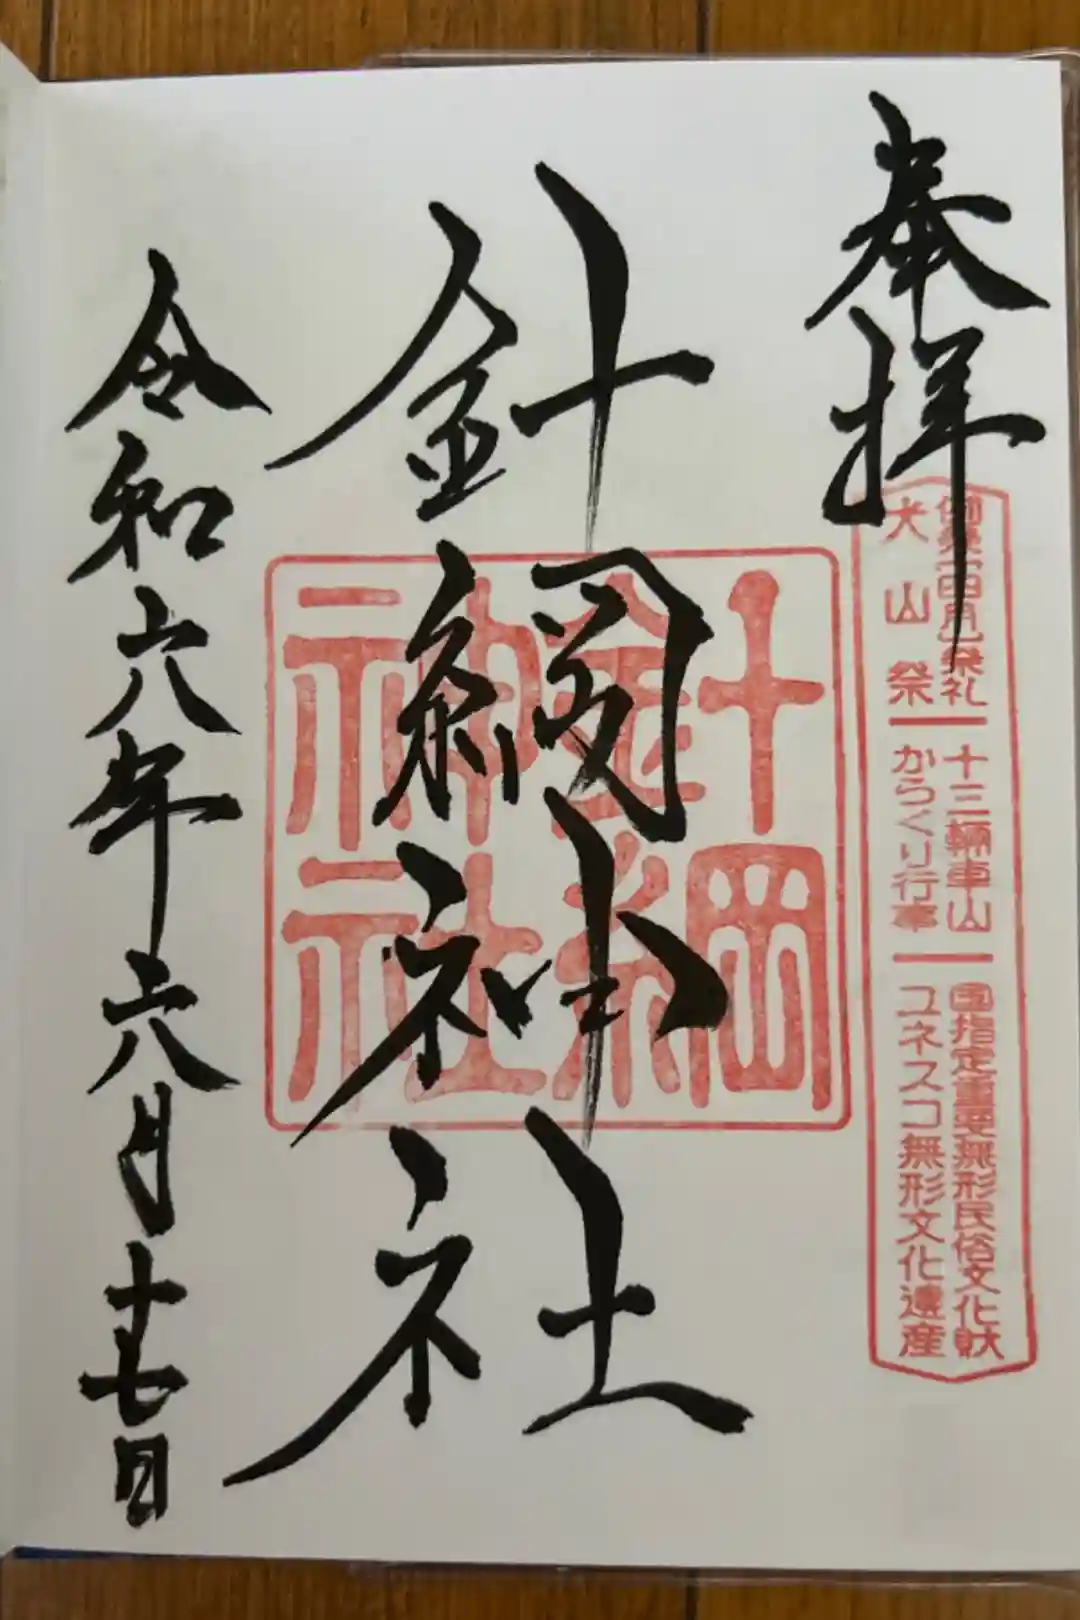 奉拝
例祭(四月)祭礼
犬山祭
十三輛車山
からくり行事
国指定重要無形民俗文化財
ユネスコ無形文化遺産
針綱神社
針綱神社
令和六年六月十七日